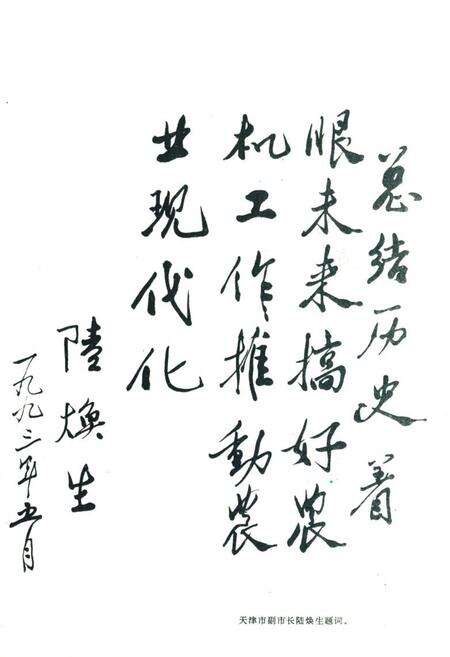 总结历史着
眼未来搞好农
机工作推動农
业现代化
陸焕生
一九九三年五月
天津市副市长陆焕生题词。